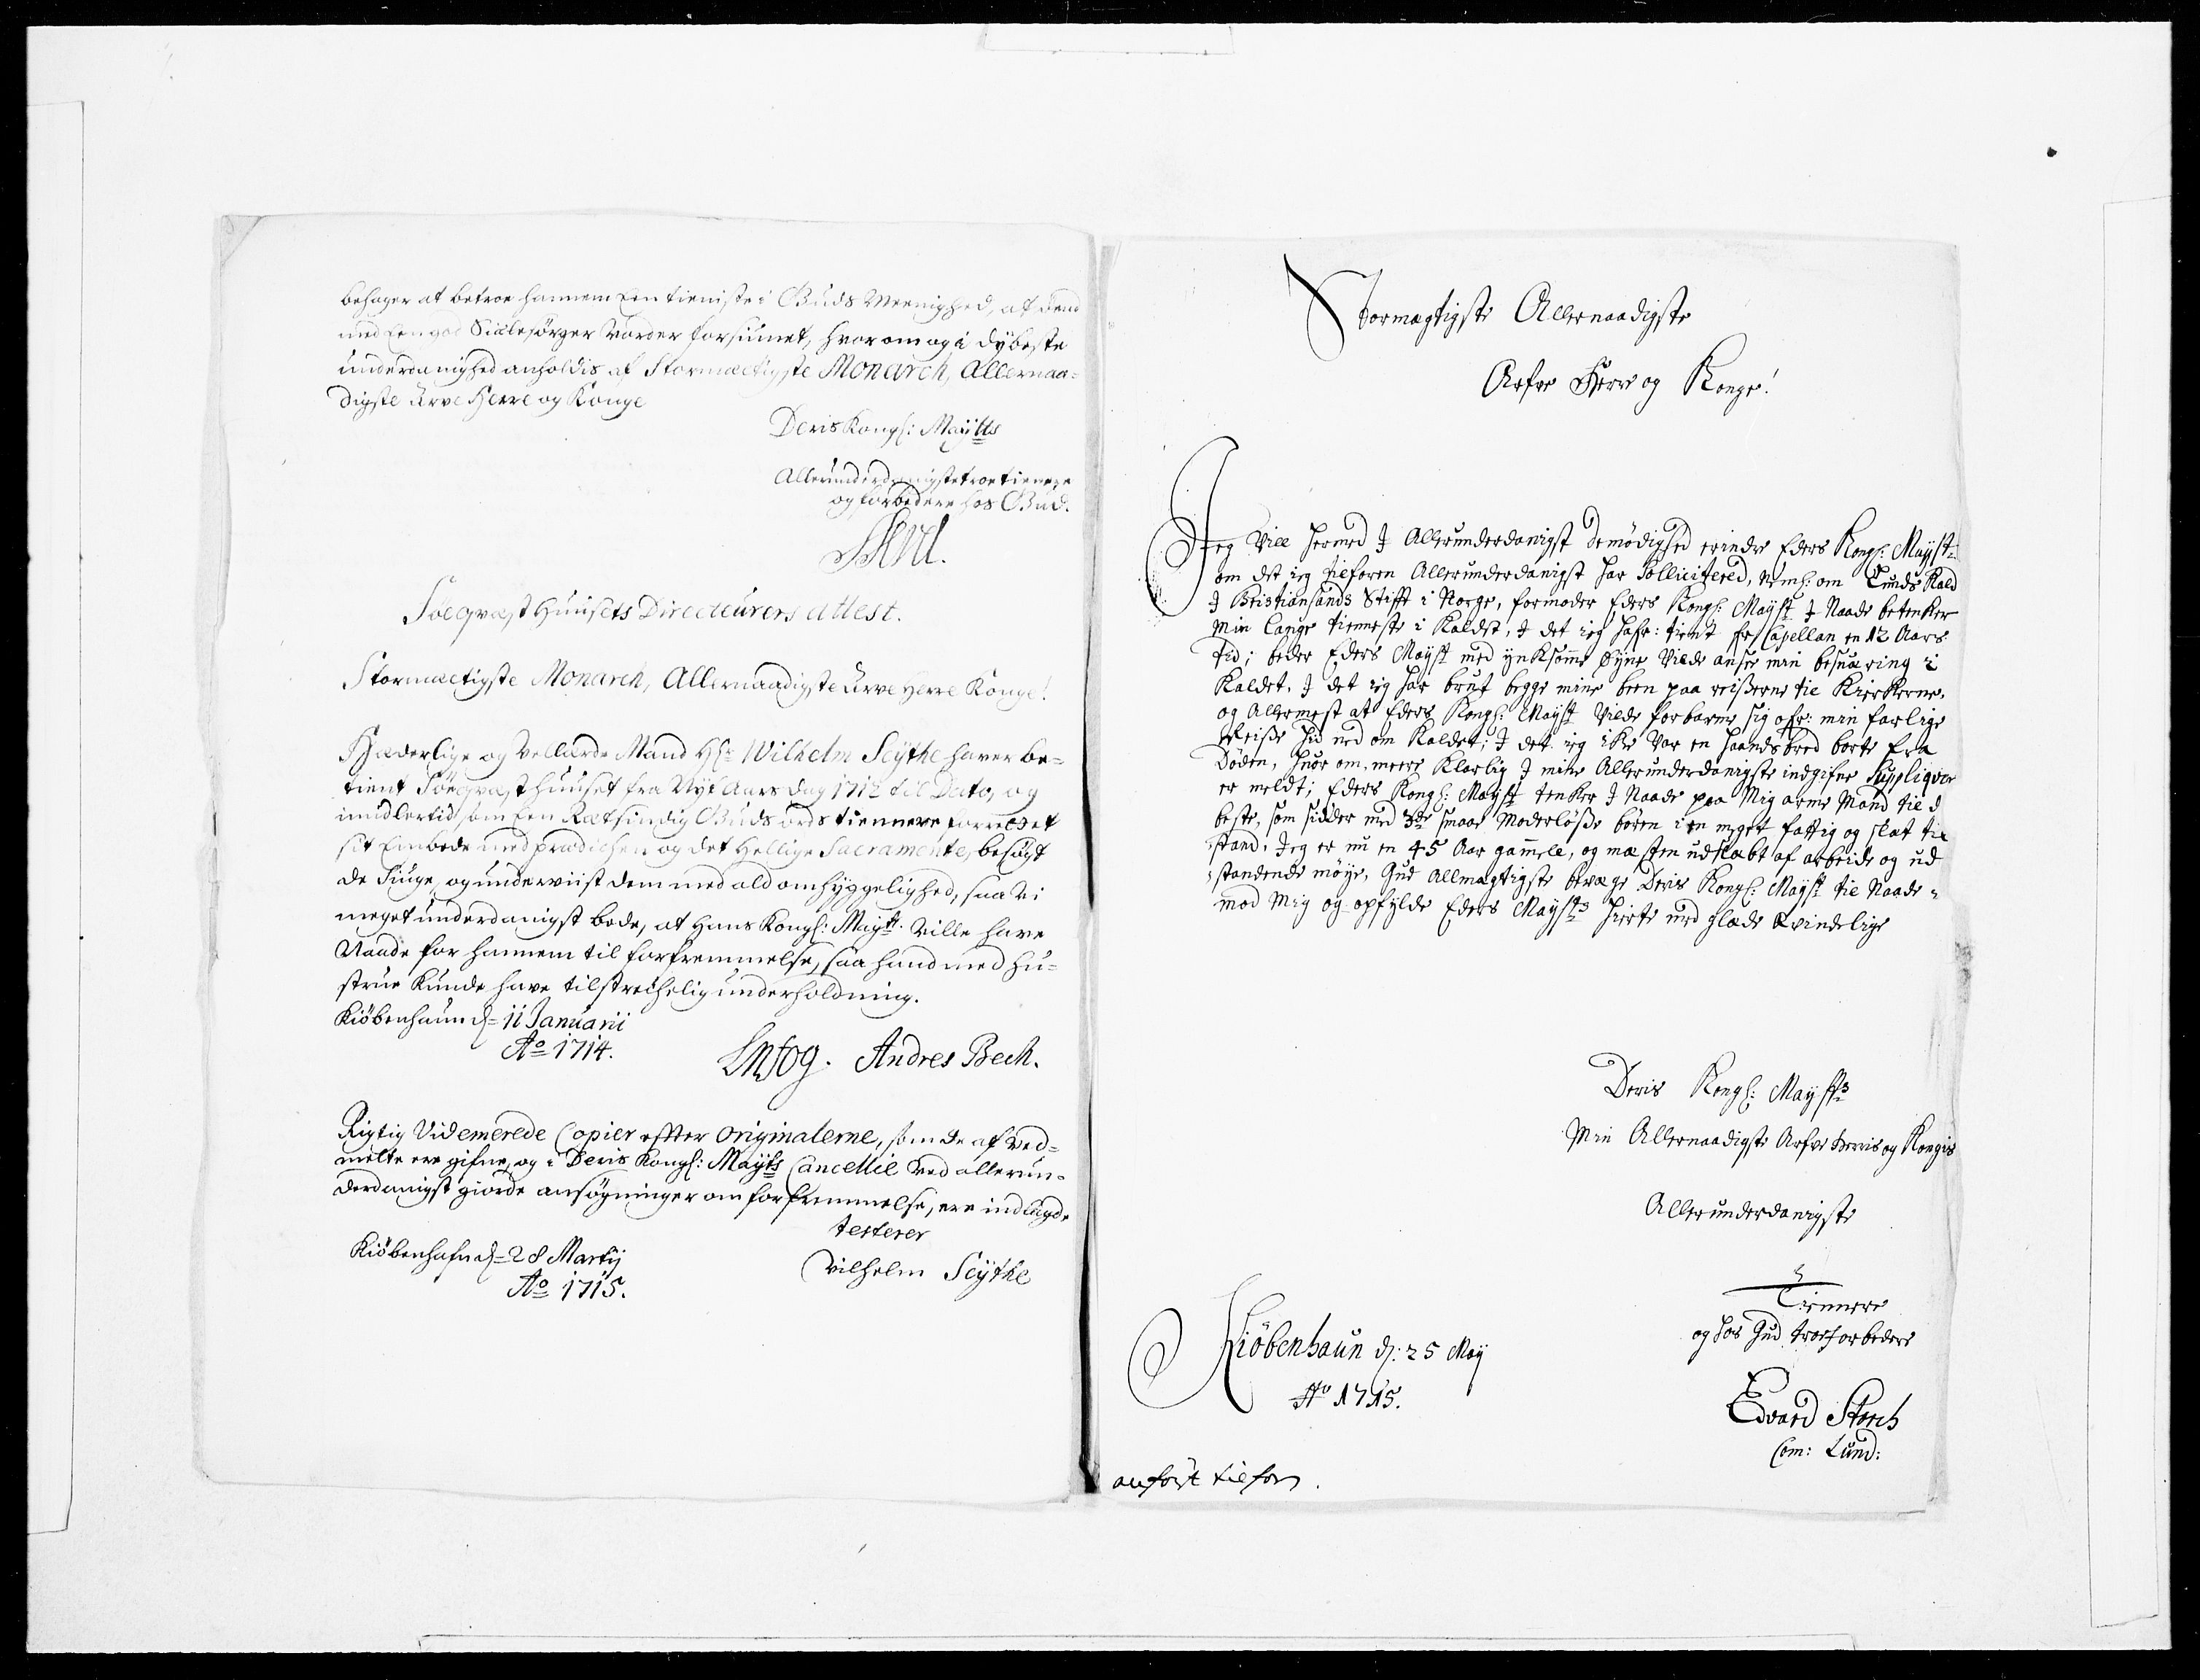 behager at betroe hannem Een tieniste i Guds Meenighed, at dend
med Een god Siælesørger vorder forsiunet, hvorom og i dybeste
underdanighed anholdis af Stormæctigste Monarch, Allernaa-
digste Arve Herre og Konge
Deris Kongl: Maÿtts
Allerunderdanigste troe tienere
og forbedere hos Gud.
Söeqvæst Huusets Directeurers Attest.
Stormæctigste Monarch, Allernaadigste Arve Herre Konge!
Hæderlige og Vellærde Mand Hr Wilhelm Seÿthe haver be-
tient Söeqvæsthuuset fra Nyt Aars dag 1712 til Dato, og
imidlertid som Een Retsindig Guds ords tiennere forrettet
sit Embede med prædichen og det Hellige Sacramente, besøgt
de Siuge, og underviist dem med ald omhyggelighed, saa vi
meget underdanigst bede, at Hans Kongl: Maytt. ville have
Naade for hannem til forfremmelse, saa hand med Hu-
strue kunde have tilstrechelig underholdning.
Kiöbenhaun d= 11 Januarii
Ao 1714.
Andres Bech.
Rigtig Videmerede Copier effter Originalerne, som de af ved-
melte ere gifne, og i Deris Kongl: Maÿts Cancellie ved allerun-
derdanigst giorde ansøgninger om forfremmelse, ere indlagde
testerer
Kiöbenhafn d= 28 Martij
Ao 1715.
Vilhelm Seÿthe
Stormægtigste Allernaadigste
Arfve Herre og Konge!
Jeg Vill hermed J Allerunderdanigst demødighed erindre Eders Kongl: Mayst:
om det ieg tilforen Allerunderdanigst har Sollicitered, Neml: om Lunds Kald
J Christiansands Stifft i Norge, formoder Eders Kongl: Mayst J Naade betenker
min lange tienneste i Kaldet, J det ieg hafr: tient for Capellan en 12 Aars
tid; beder Eders Mayst med ynksomme Øyne Vilde ansee min besuæring i
Kaldet, J det ieg har brut begge mine been paa reißerne til Kierkerne,
og Allermest at Eders Kongl: Mayst Vilde forbarme sig ofr: min farlige
Reiße hid ned om Kaldet; J det ieg ike Var en haandsbred borte fra
Døden, huor om meere klarlig J mine Allerunderdanigste indgifne Suppliqver
er meldt; Eders Kongl: Mayst tenker J Naade paa Mig arme Mand til d
beste, som sidder med 3de smaae Moderløße børen i en meget fattig og slat til
stand. Jeg er nu en 45 Aar gammell, og mæsten udslæbt af arbeide og ud
standende møye, Gud Allmægtigste bevæge Deris Kongl: Mayst til Naade
mod Mig og opfylde Eders Maysts hierte med glæde Evindelige
Deris Kongl: Maysts
Min Allernaadigste Arfve Herris og Kongis
Allerunderdanigste
Tiennere
og hos Gud troe forbedere
Kiöbenhaun d: 25 May
Ao 1715.
Edvard Storch
Com: Lund:
anført tilforn.